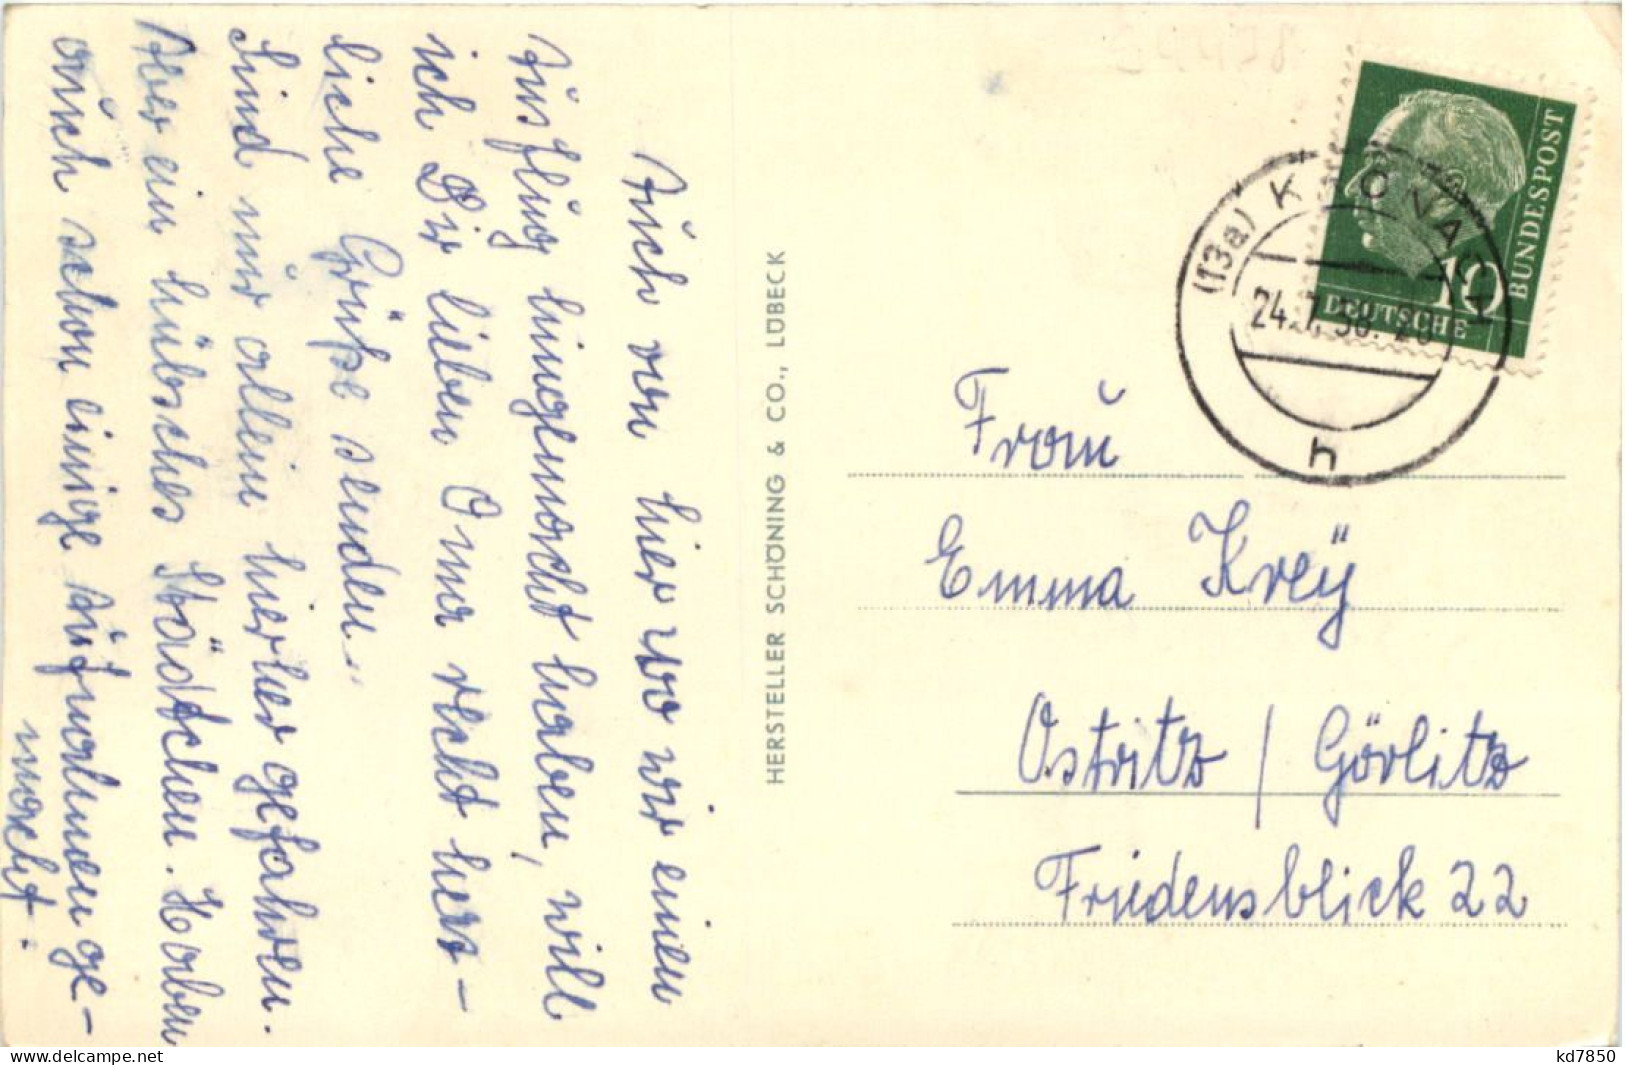 Auch von hier wo wir einen
Ausflug hingemacht haben, will
ich Dir lieben Oma recht herz-
liche Grüße senden.
Sind nur allein hierher gefahren.
Aber ein hübsches Städtchen. Haben
auch schon einige Aufnahmen ge-
macht.
HERSTELLER SCHÖNING & CO., LÜBECK
(13a) KRONACH
24.7.58. 20
h
DEUTSCHE
10
BUNDESPOST
Frau
Emma Krey
Ostritz / Görlitz
Friedensblick 22
www.delcampe.net
kd7850